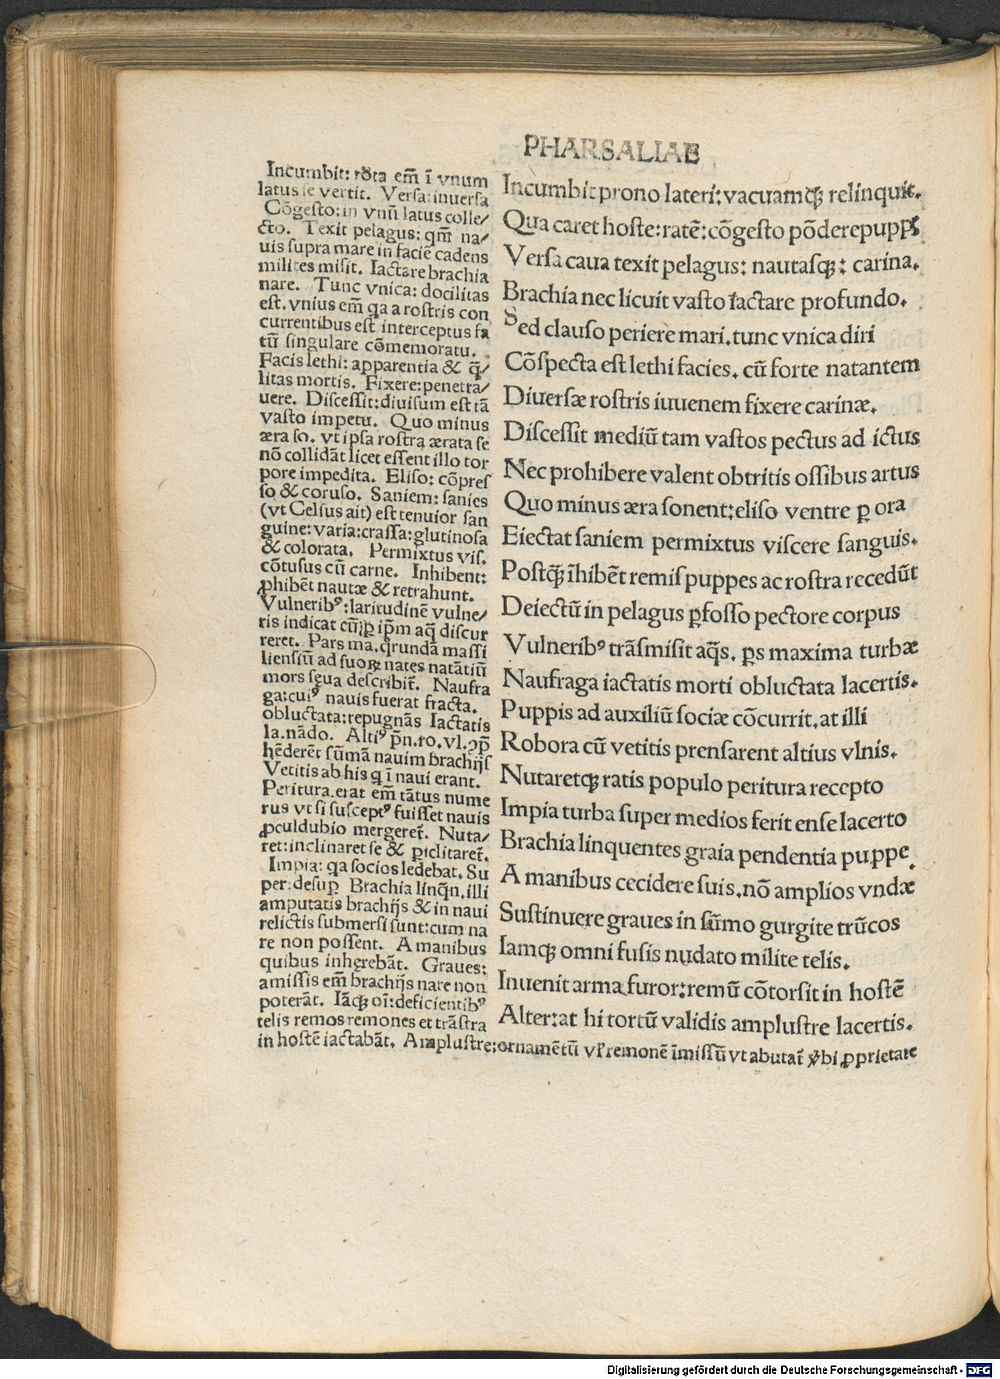 PHARSALIAE
Incumbit: rōta em̄ ī vnum
latus se vertit. Versa: inuersa
Cōgesto: in vnū latus colle/
cto. Texit pelagus: qm̄ na/
uis supra mare in faciē cadens
milites misit. Iactare brachia
nare. Tunc vnica: docilitas
est. vnius em̄ qa a rostris con
currentibus est interceptus fa
tū singulare cōmemoratu.
Facis lethi: apparentia & q̄/
litas mortis. Fixere: penetra/
uere. Discessit: diuisum est tā
vasto impetu. Quo minus
æra so. vt ipsa rostra ærata se
nō collidāt licet essent illo tor
pore impedita. Eliso: cōpres
so & coruso. Saniem: sanies
(vt Celsius ait) est tenuior san
guine: varia: crassa: glutinosa
& colorata. Permixtus vis.
cōtusus cū carne. Inhibent:
ꝓhibēt nautæ & retrahunt.
Vulneribꝰ: laritudinē vulne/
ris indicat cū ꝑ ip̄m aq̄ discur
reret. Pars ma. qrundā massi
liensiū ad suoꝝ nates natātiū
mors seua describit̄. Naufra
ga: cuiꝰ nauis fuerat fracta.
obluctata: repugnās Iactatis
la. nādo. Altiꝰ p̄n. ro. vl. ꝯp̄
hēderēt sūmā nauim brachijs
Vetitis ab his q ī naui erant.
Peritura. erat em̄ tātus nume
rus vt si susceptꝰ fuisset nauis
ꝓculdubio mergeret̄. Nuta/
ret: inclinaret se & ꝑiclitaret̄.
Impia: qa socios ledebat. Su
per: desuꝑ Brachia linq̄n. illi
amputatis brachijs & in naui
relictis submersi sunt: cum na
re non possent. A manibus
quibus inherebāt. Graues:
amissis em̄ brachijs nare non
poterāt. Iāqꝫ oī: deficientibꝰ
telis remos remones et trāstra
in hostē iactabāt. Amplustre: ornamētū vꝉ remonē īmissū vt abutat̄ ꝟbi ꝓprietate
Incumbit prono lateri: vacuamqꝫ relinquit.
Qua caret hoste: ratē: cōgesto pōdere puppis
Versa caua texit pelagus: nautasqꝫ: carina.
Brachia nec licuit vasto iactare profundo.
Sed clauso periere mari. tunc vnica diri
Cōspecta est lethi facies. cū forte natantem
Diuersæ rostris iuuenem fixere carinæ.
Discessit mediū tam vastos pectus ad ictus
Nec prohibere valent obtritis ossibus artus
Quo minus æra sonent: eliso ventre ꝑ ora
Eiectat saniem permixtus viscere sanguis.
Postqꝫ īhibēt remis puppes ac rostra recedūt
Deiectū in pelagus ꝑfosso pectore corpus
Vulneribꝰ trāsmisit aq̄s. ꝑs maxima turbæ
Naufraga iactatis morti obluctata lacertis.
Puppis ad auxiliū sociæ cōcurrit. at illi
Robora cū vetitis prensarent altius vlnis.
Nutaretqꝫ ratis populo peritura recepto
Impia turba super medios ferit ense lacerto
Brachia linquentes graia pendentia puppe.
A manibus cecidere suis. nō amplios vndæ
Sustinuere graues in sūmo gurgite trūcos
Iamqꝫ omni fusis nudato milite telis.
Inuenit arma furor: remū cōtorsit in hostē
Alter: at hi tortū validis amplustre lacertis.
Digitalisierung gefördert durch die Deutsche Forschungsgemeinschaft - DFG